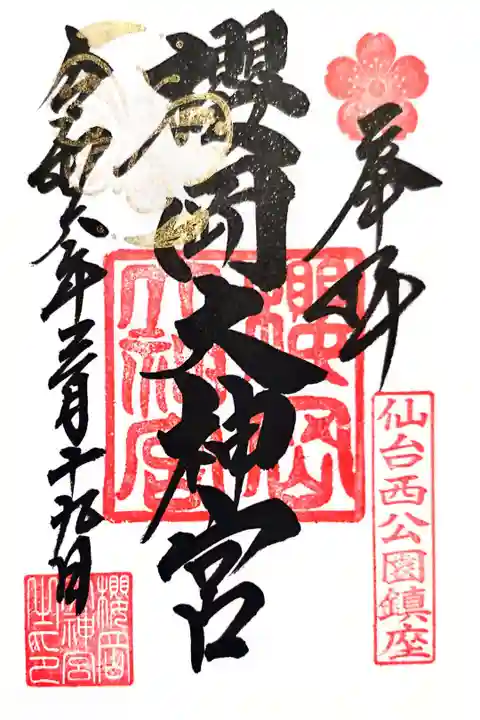 奉拝
仙台西公園鎮座
櫻岡大神宮
櫻岡大神宮
令和六年三月十九日
櫻岡大神宮之印